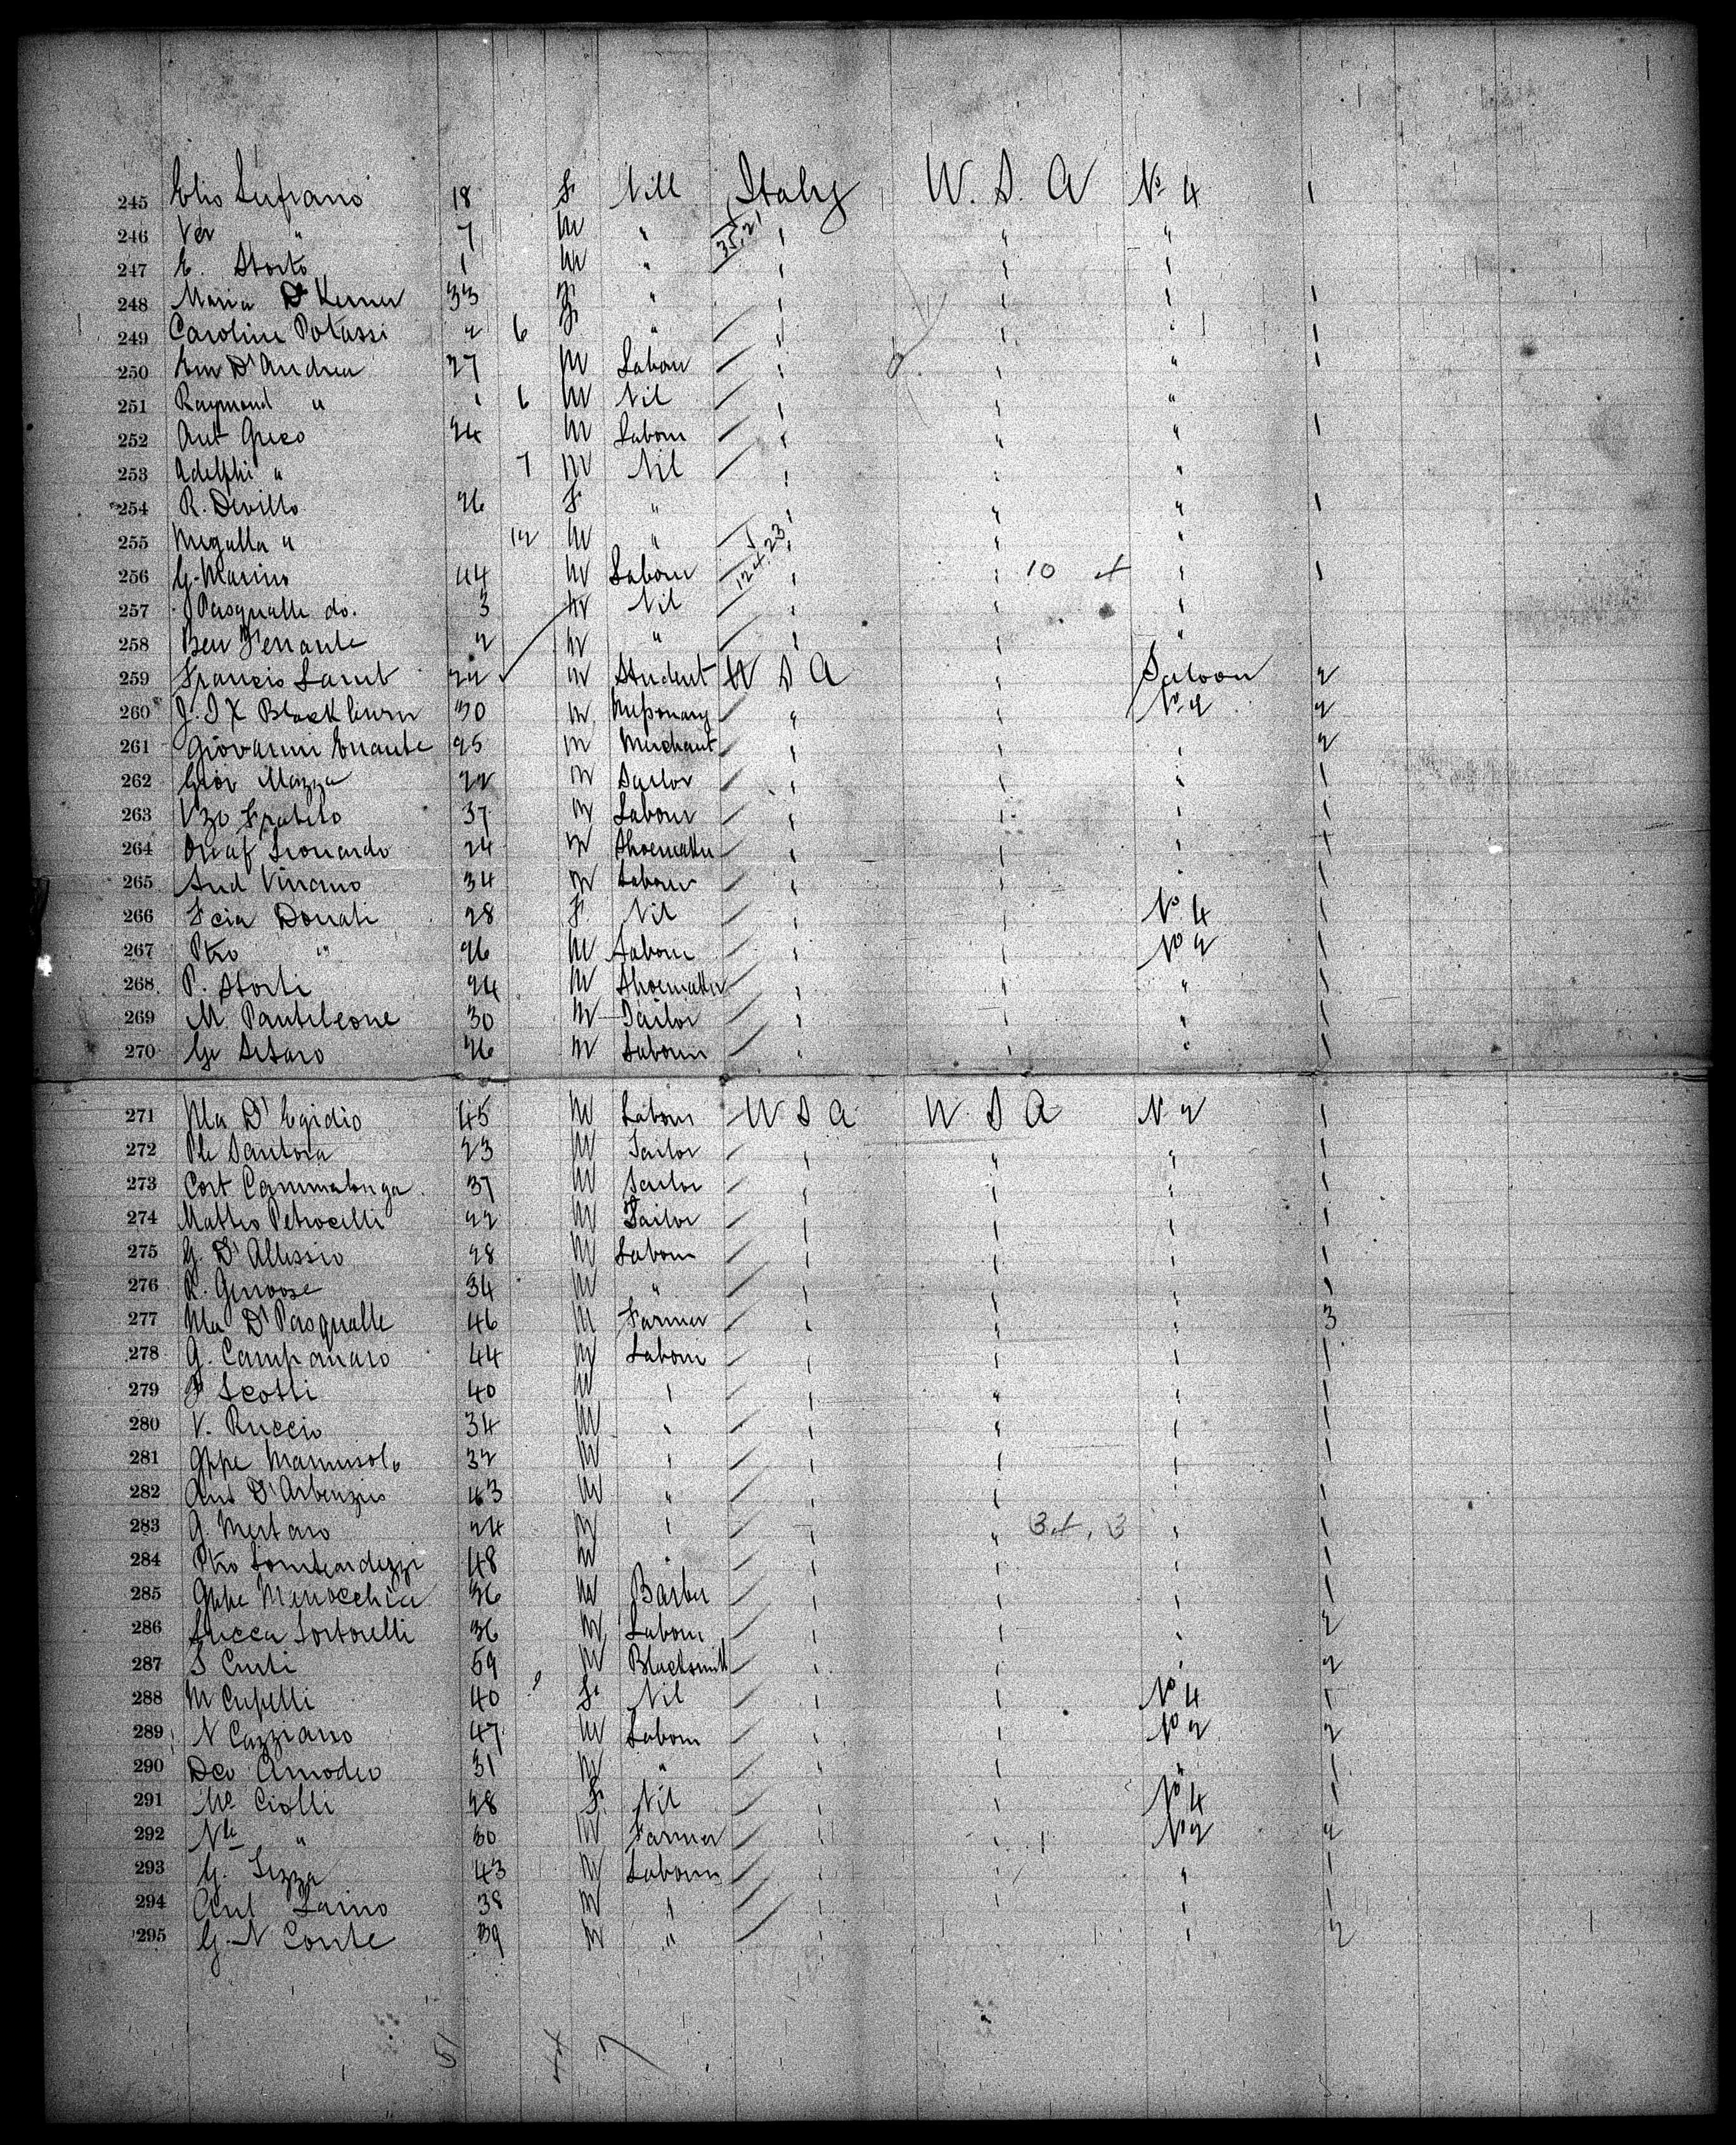 245 Elio Lufrano 18 F Nill Italy U.S.A No 4 1
246 Ver " 7 M " " " "
247 E. Storto 1 M " " " "
248 Maria D 33 F " " " " 1
249 Caroline Potassi 2 6 F " " " " 1
250 Em D'Andrea 27 M Labour " " " 1
251 Raymond " 1 6 M Nil " " "
252 Ant Greco 24 M Labour " " " 1
253 Adelphi " 7 M Nil " " "
254 R. Devitto 26 F " " " " 1
255 Megalla " 12 M " " " "
256 G. Marino 44 M Labour " " 10 + " 1
257 Pasqualle do. 3 M Nil " " "
258 Ben Ferrante 2 M " " " "
259 Francis Lamb 22 M Student U S A " Saloon 2
260 Blackburn 30 M Missionary " " No 2 2
261 Giovanni Errante 25 M Merchant " " " 2
262 Giov Mazza 22 M Sailor " " " 1
263 Vzo Fratelo 37 M Labour " " " 1
264 Leonardo 24 M Shoemaker " " " 1
265 And Vinano 34 M Labour " " " 1
266 Donati 28 F Nil " " No 4 1
267 Ptro " 26 M Labour " " No 2 1
268 P. Storti 24 M Shoemaker " " " 1
269 M. Pantileone 30 M Tailor " " " 1
270 Ge 26 M Labour " " " 1
271 Ma D'Egidio 45 M Labour U S A U.S A N 2 1
272 Ple Santora 23 M Tailor " " " 1
273 Cort Cammalonga 37 M Tailor " " " 1
274 Matteo Petrocelli 22 M Tailor " " " 1
275 G. D'Allessio 28 M Labour " " " 1
276 R. Gervose 34 M " " " " 1
277 Ma D'Pasqualle 46 M Farmer " " " 3
278 G. Campanaro 44 M Labour " " " 1
279 F Scotti 40 M " " " " 1
280 V. Ruccio 34 M " " " " 1
281 Gppe 32 M " " " " 1
282 Ant D'Arbenzio 43 M " " " " 1
283 G. Mertaro 24 M " " " 3+, 3 " 1
284 Ptro Lombardezzi 48 M " " " " 1
285 Gppe Menocchia 36 M Barber " " " 1
286 Lucca Sortorelli 36 M Labour " " " 2
287 S Curti 59 M Blacksmith " " " 2
288 M Cupelli 40 F Nil " " No 4 1
289 N Cazziano 47 M Labour " " No 2 2
290 Deo Amodeo 31 M " " " " 1
291 Ma Ciolli 28 F Nil " " No 4 1
292 Nla " 30 M Farmer " " No 2 2
293 G. Lizza 43 M Labour " " " 1
294 Ant Laino 38 M " " " " 1
295 G. N Conte 39 M " " " " 2
51 44 7